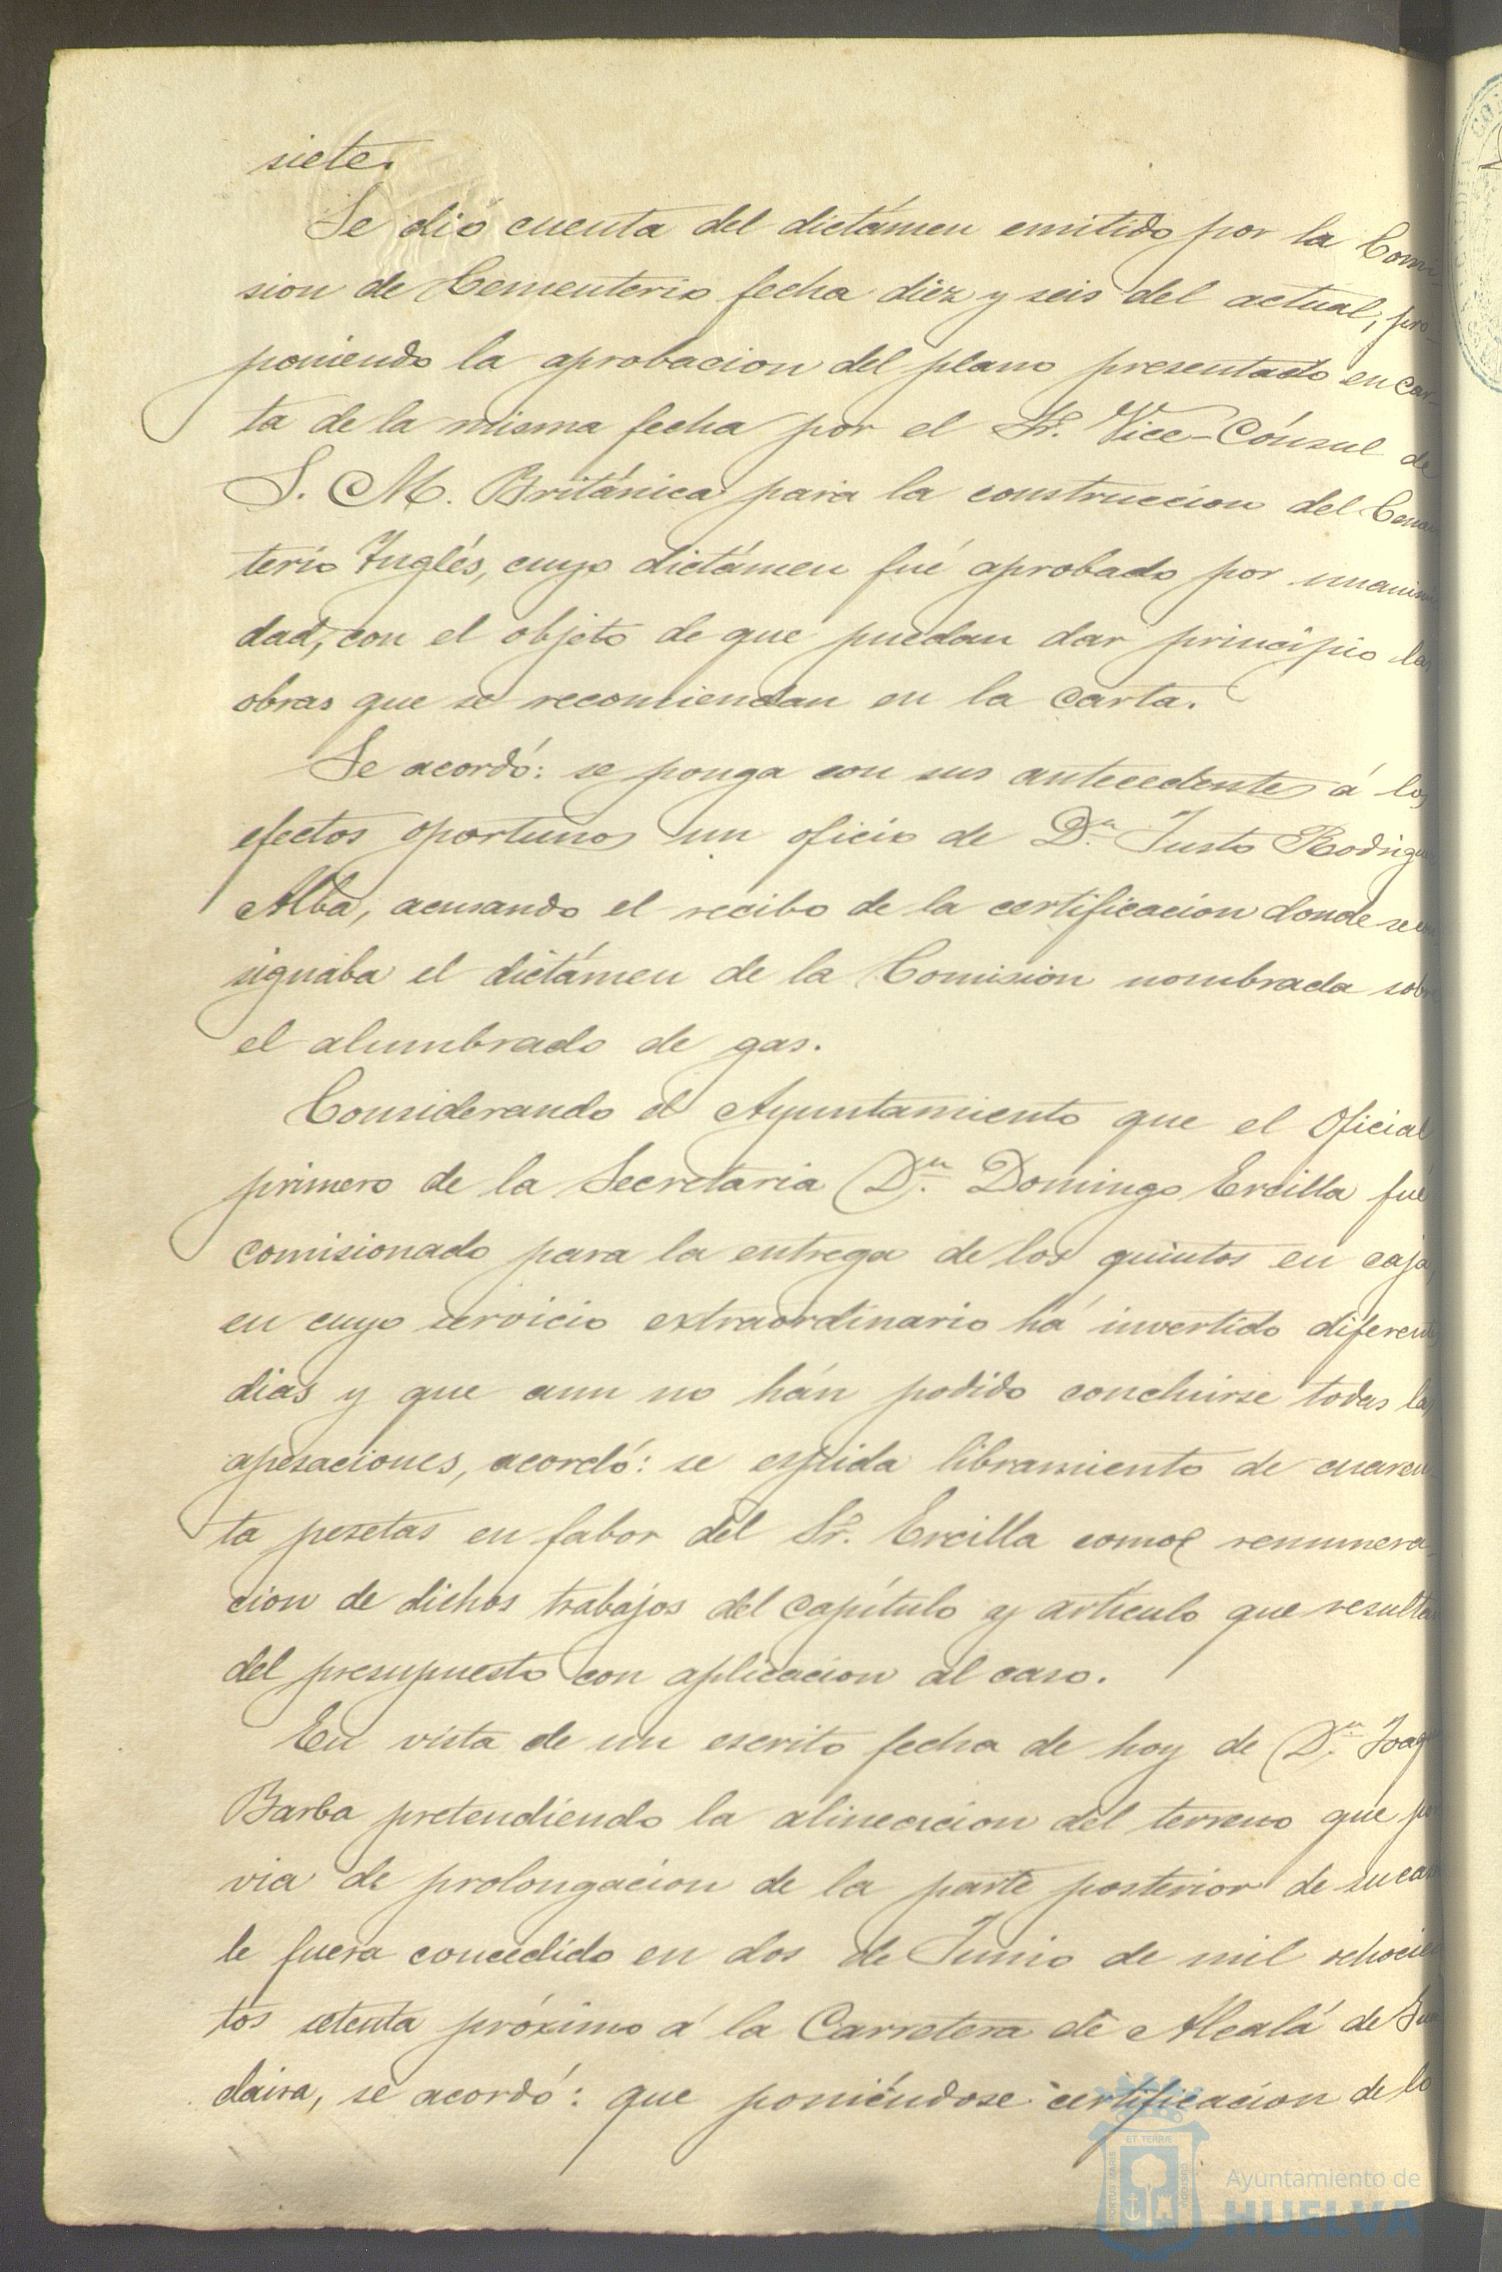 siete.
Se dió cuenta del dictámen emitido por la Comi-
sion de Cementerio fecha diez y seis del actual, pro-
poniendo la aprobacion del plano presentado en car-
ta de la misma fecha por el Sr. Vice-Cónsul de
S. M. Británica para la construccion del Cemen
terio Inglés, cuyo dictámen fué aprobado por unanimi
dad, con el objeto de que puedan dar principio las
obras que se recomiendan en la carta.
Se acordó: se ponga con sus antecedentes á los
efectos oportunos un oficio de Dn. Justo Rodrigu
Alba, acusando el recibo de la certificacion donde se con
signaba el dictámen de la Comision nombrada sobre
el alumbrado de gas.
Considerando el Ayuntamiento que el Oficial
primero de la Secretaria Dn. Domingo Ercilla fué
comisionado para la entrega de los quintos en caja,
en cuyo servicio extraordinario há invertido diferent
dias y que aun no hán podido concluirse todas las
operaciones, acordó: se espida libramiento de cuaren-
ta pesetas en fabor del Sr. Ercilla como remunera-
cion de dichos trabajos del capítulo y artículo que resulta
del presupuesto con aplicacion al caso.
En vista de un escrito fecha de hoy de Dn. Joaq
Barba pretendiendo la alineacion del terreno que por
via de prolongacion de la parte posterior de su casa
le fuera concedido en dos de Junio de mil ochocien
tos setenta próximo á la Carretera de Alcalá de Gua
daira, se acordó: que poniéndose certificacion de lo
ET TERRÆ
PORTUS MARIS
CUSTODIA
Ayuntamiento de
HUELVA